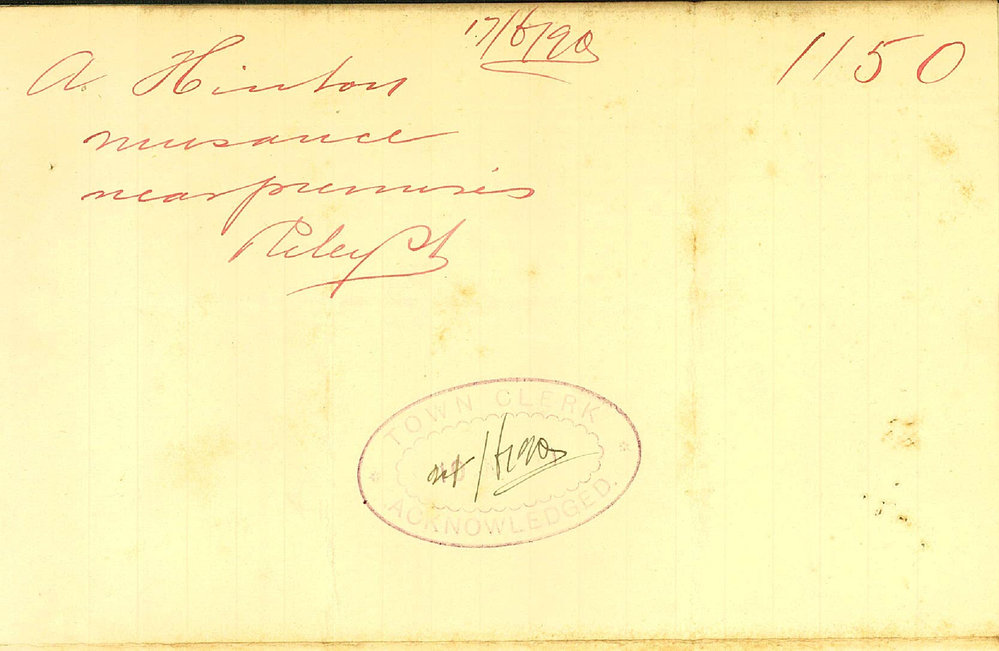 17/6/90
1150
A. Hinton
nuisance
near premises
Riley St
TOWN CLERK
/6/90
ACKNOWLEDGED.